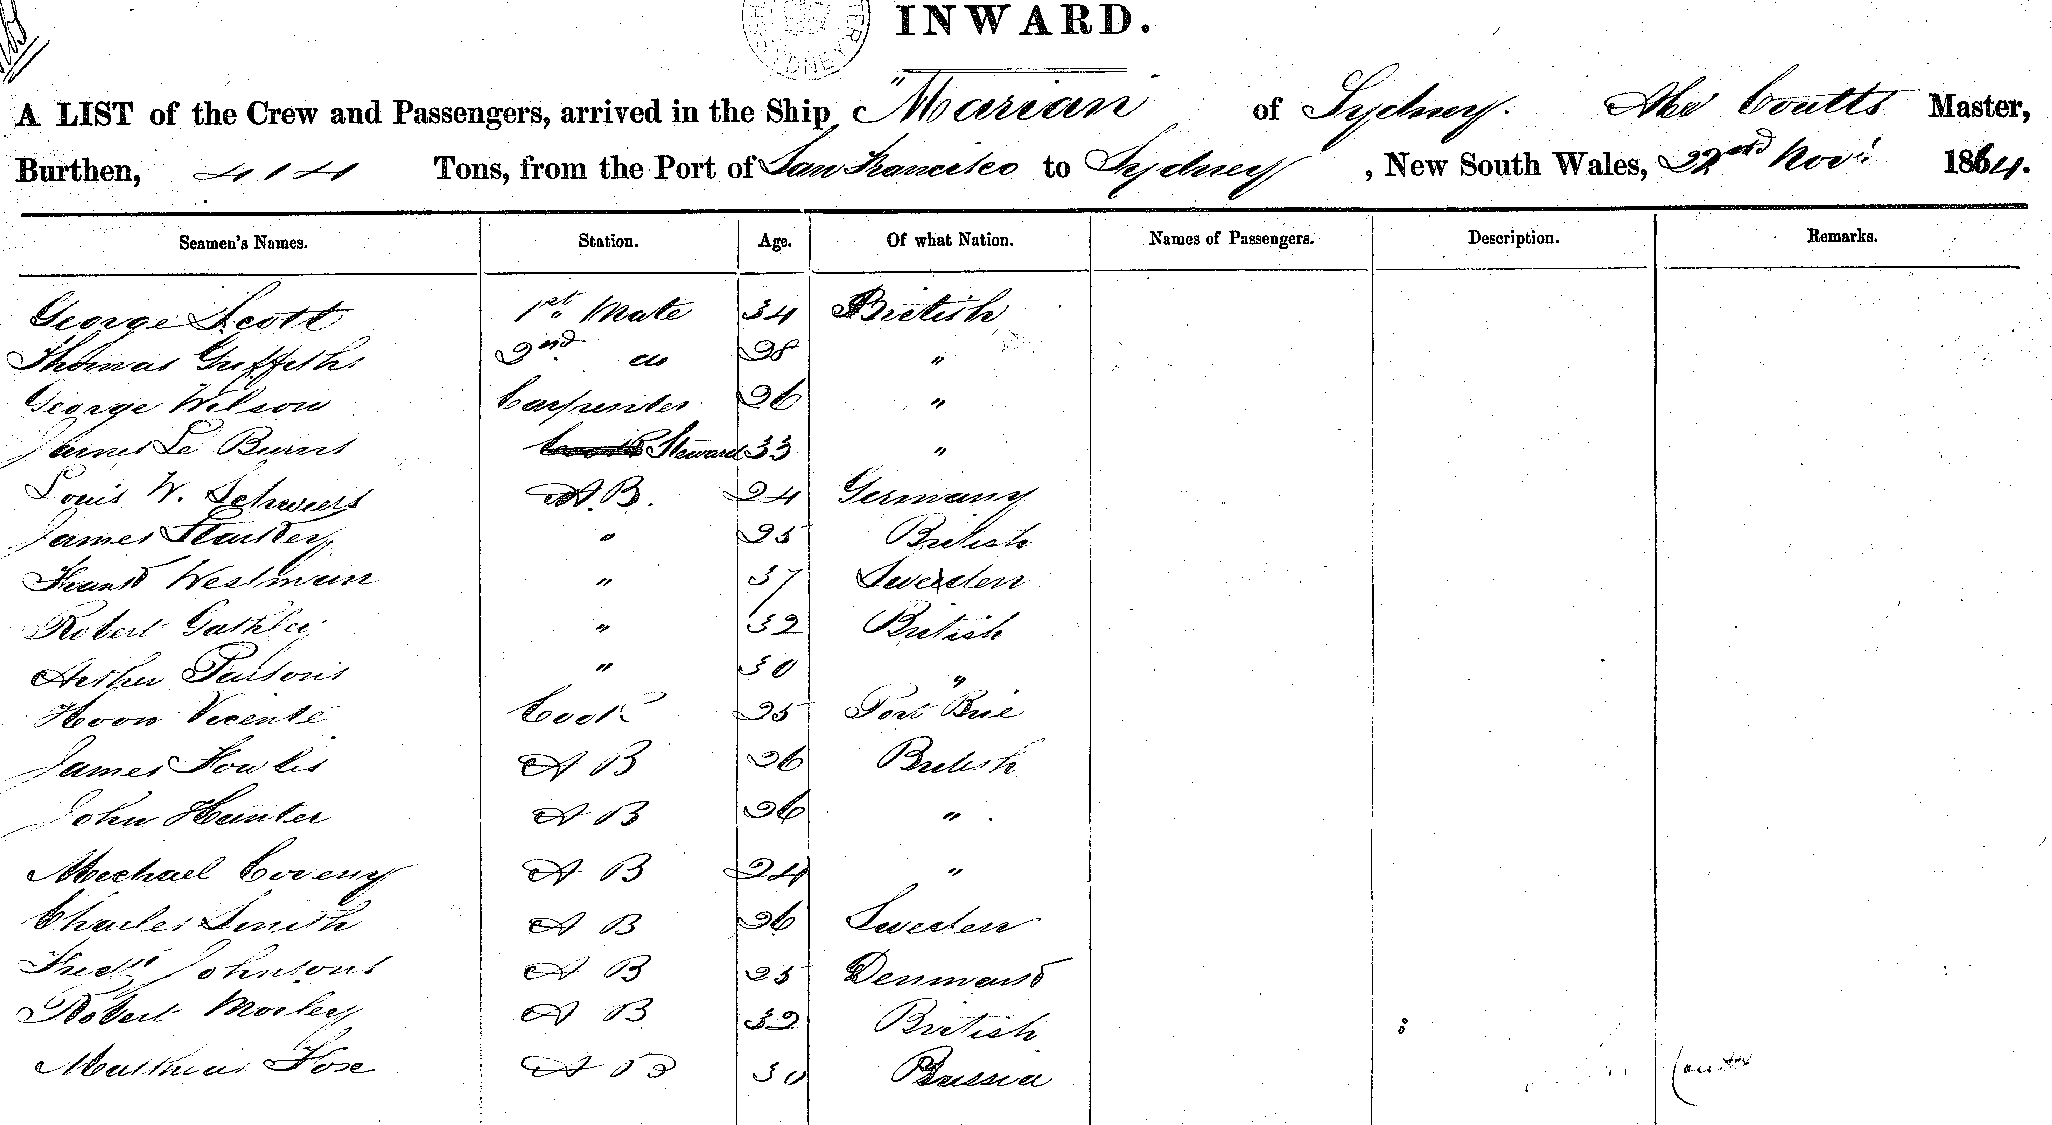 INWARD.
A LIST of the Crew and Passengers, arrived in the Ship "Marian of Sydney. Coutts Master,
Burthen, 414 Tons, from the Port of San Francisco to Sydney, New South Wales, 22nd Novr 1864.
Seamen's Names. Station. Age. Of what Nation. Names of Passengers. Description. Remarks.
George Scott 1st. Mate 34 British
Thomas Griffiths 2nd do 28 "
George Wilson Carpenter 26 "
James Le Burns Steward 33 "
Louis W. A.B. 24 Germany
James " 25 British
Frank Westman " 37 Sweden
Robert " 32 British
Arther Parsons " 30 "
Vicente Cook 25
James Fowlis A B 26 British
John Hunter A B 26 "
Michael Coveny A B 24 "
Charles Smith A B 26 Sweden
Fredk Johnsons A B 25 Denmark
Robert Morley A B 32 British
Mathias A B 30